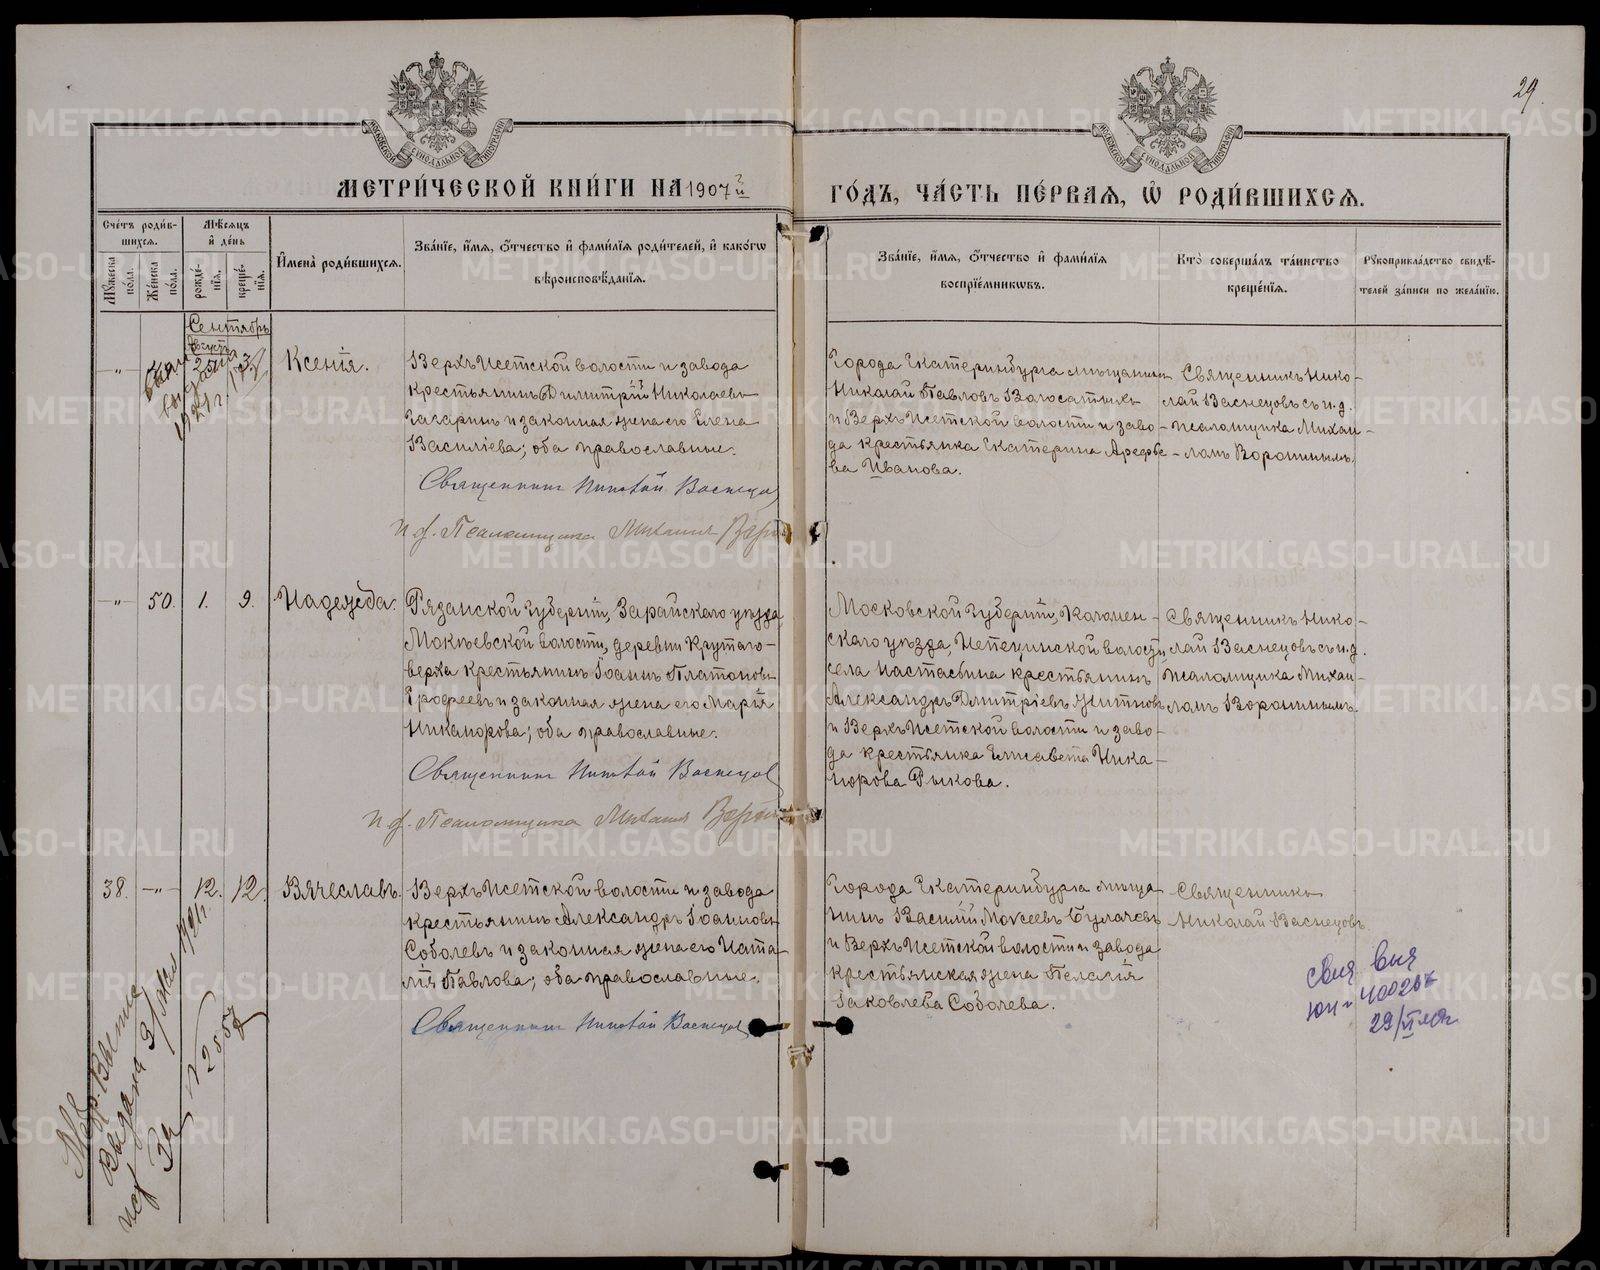 29.
МОСКОВСКОЙ СѴНОДАЛЬНОЙ ТИПОГРАФІИ
МОСКОВСКОЙ СѴНОДАЛЬНОЙ ТИПОГРАФІИ
МЕТРИ́ЧЕСКОЙ КНИ́ГИ НА 1907й
ГО́ДЪ, ЧА́СТЬ ПЕ́РВАѦ, Ѡ҆ РОДИ́ВШИХСѦ.
Сче́тъ роди́в-
шихсѧ.
Мꙋ́жеска по́ла.
Же́нска по́ла.
Мѣ́сѧцъ
и҆ де́нь
рожде́-
нїѧ.
креще́-
нїѧ.
И҆мена̀ роди́вшихсѧ.
Зва́нїе, и҆́мѧ, ѻ҆́тчество и҆ фами́лїѧ роди́телей, и҆ како́гѡ
вѣроисповѣ́данїѧ.
Зва́нїе, и҆́мѧ, ѻ҆́тчество и҆ фами́лїѧ
воспрїе́мникѡвъ.
Кто̀ соверша́лъ та́инство
креще́нїѧ.
Рꙋкоприкла́дство свидѣ́-
телей за́писи по жела́нїю.
Сентябрь
Августъ
-„-
Ксенія.
Верхъ Исетской волости и завода
крестьянинъ Димитрій Николаевъ
Гагаринъ и законная жена его Елена
Василіева; оба православные.
Священникъ Николай Васнецов
И. д. Псаломщика Михаил Ворон
Города Екатеринбурга мѣщанинъ
Николай Павловъ Волосатыхъ
и Верхъ Исетской волости и заво-
да крестьянка Екатерина Арефье-
ва Иванова.
Священникъ Нико-
лай Васнецовъ съ и.д.
псаломщика Михаи-
ломъ Воронинымъ.
-„-
50.
1.
9.
Надежда.
Рязанской губерніи, Зарайскаго уѣзда,
волости, деревни Крутаго-
верха крестьянинъ Іоаннъ Платоновъ
Ерофеевъ и законная жена его Марія
Никанорова; оба православные.
Священникъ Николай Васнецов
И. д. Псаломщика Михаил Ворон
Московской губерніи, Коломен-
скаго уѣзда, волости,
села Настасьина крестьянинъ
Александръ Дмитріевъ Житновъ
и Верхъ Исетской волости и заво-
да крестьянка Елисавета Ника-
норова Рыкова.
Священникъ Нико-
лай Васнецовъ съ и.д.
псаломщика Михаи-
ломъ Воронинымъ.
38.
-„-
12.
12.
Вячеславъ.
Верхъ Исетской волости и завода
крестьянинъ Александръ Іоанновъ
Соболевъ и законная жена его Ната-
лія Павлова; оба православные.
Священникъ Николай Васнецов
Города Екатеринбурга мѣща-
нинъ Василій Моисеевъ Булачевъ
и Верхъ Исетской волости и завода
крестьянская жена Пелагія
Іаковлева Соболева.
Священникъ
Николай Васнецовъ.
Метр. Выпись
Выдана 9/мая 1911г.
За № 2557